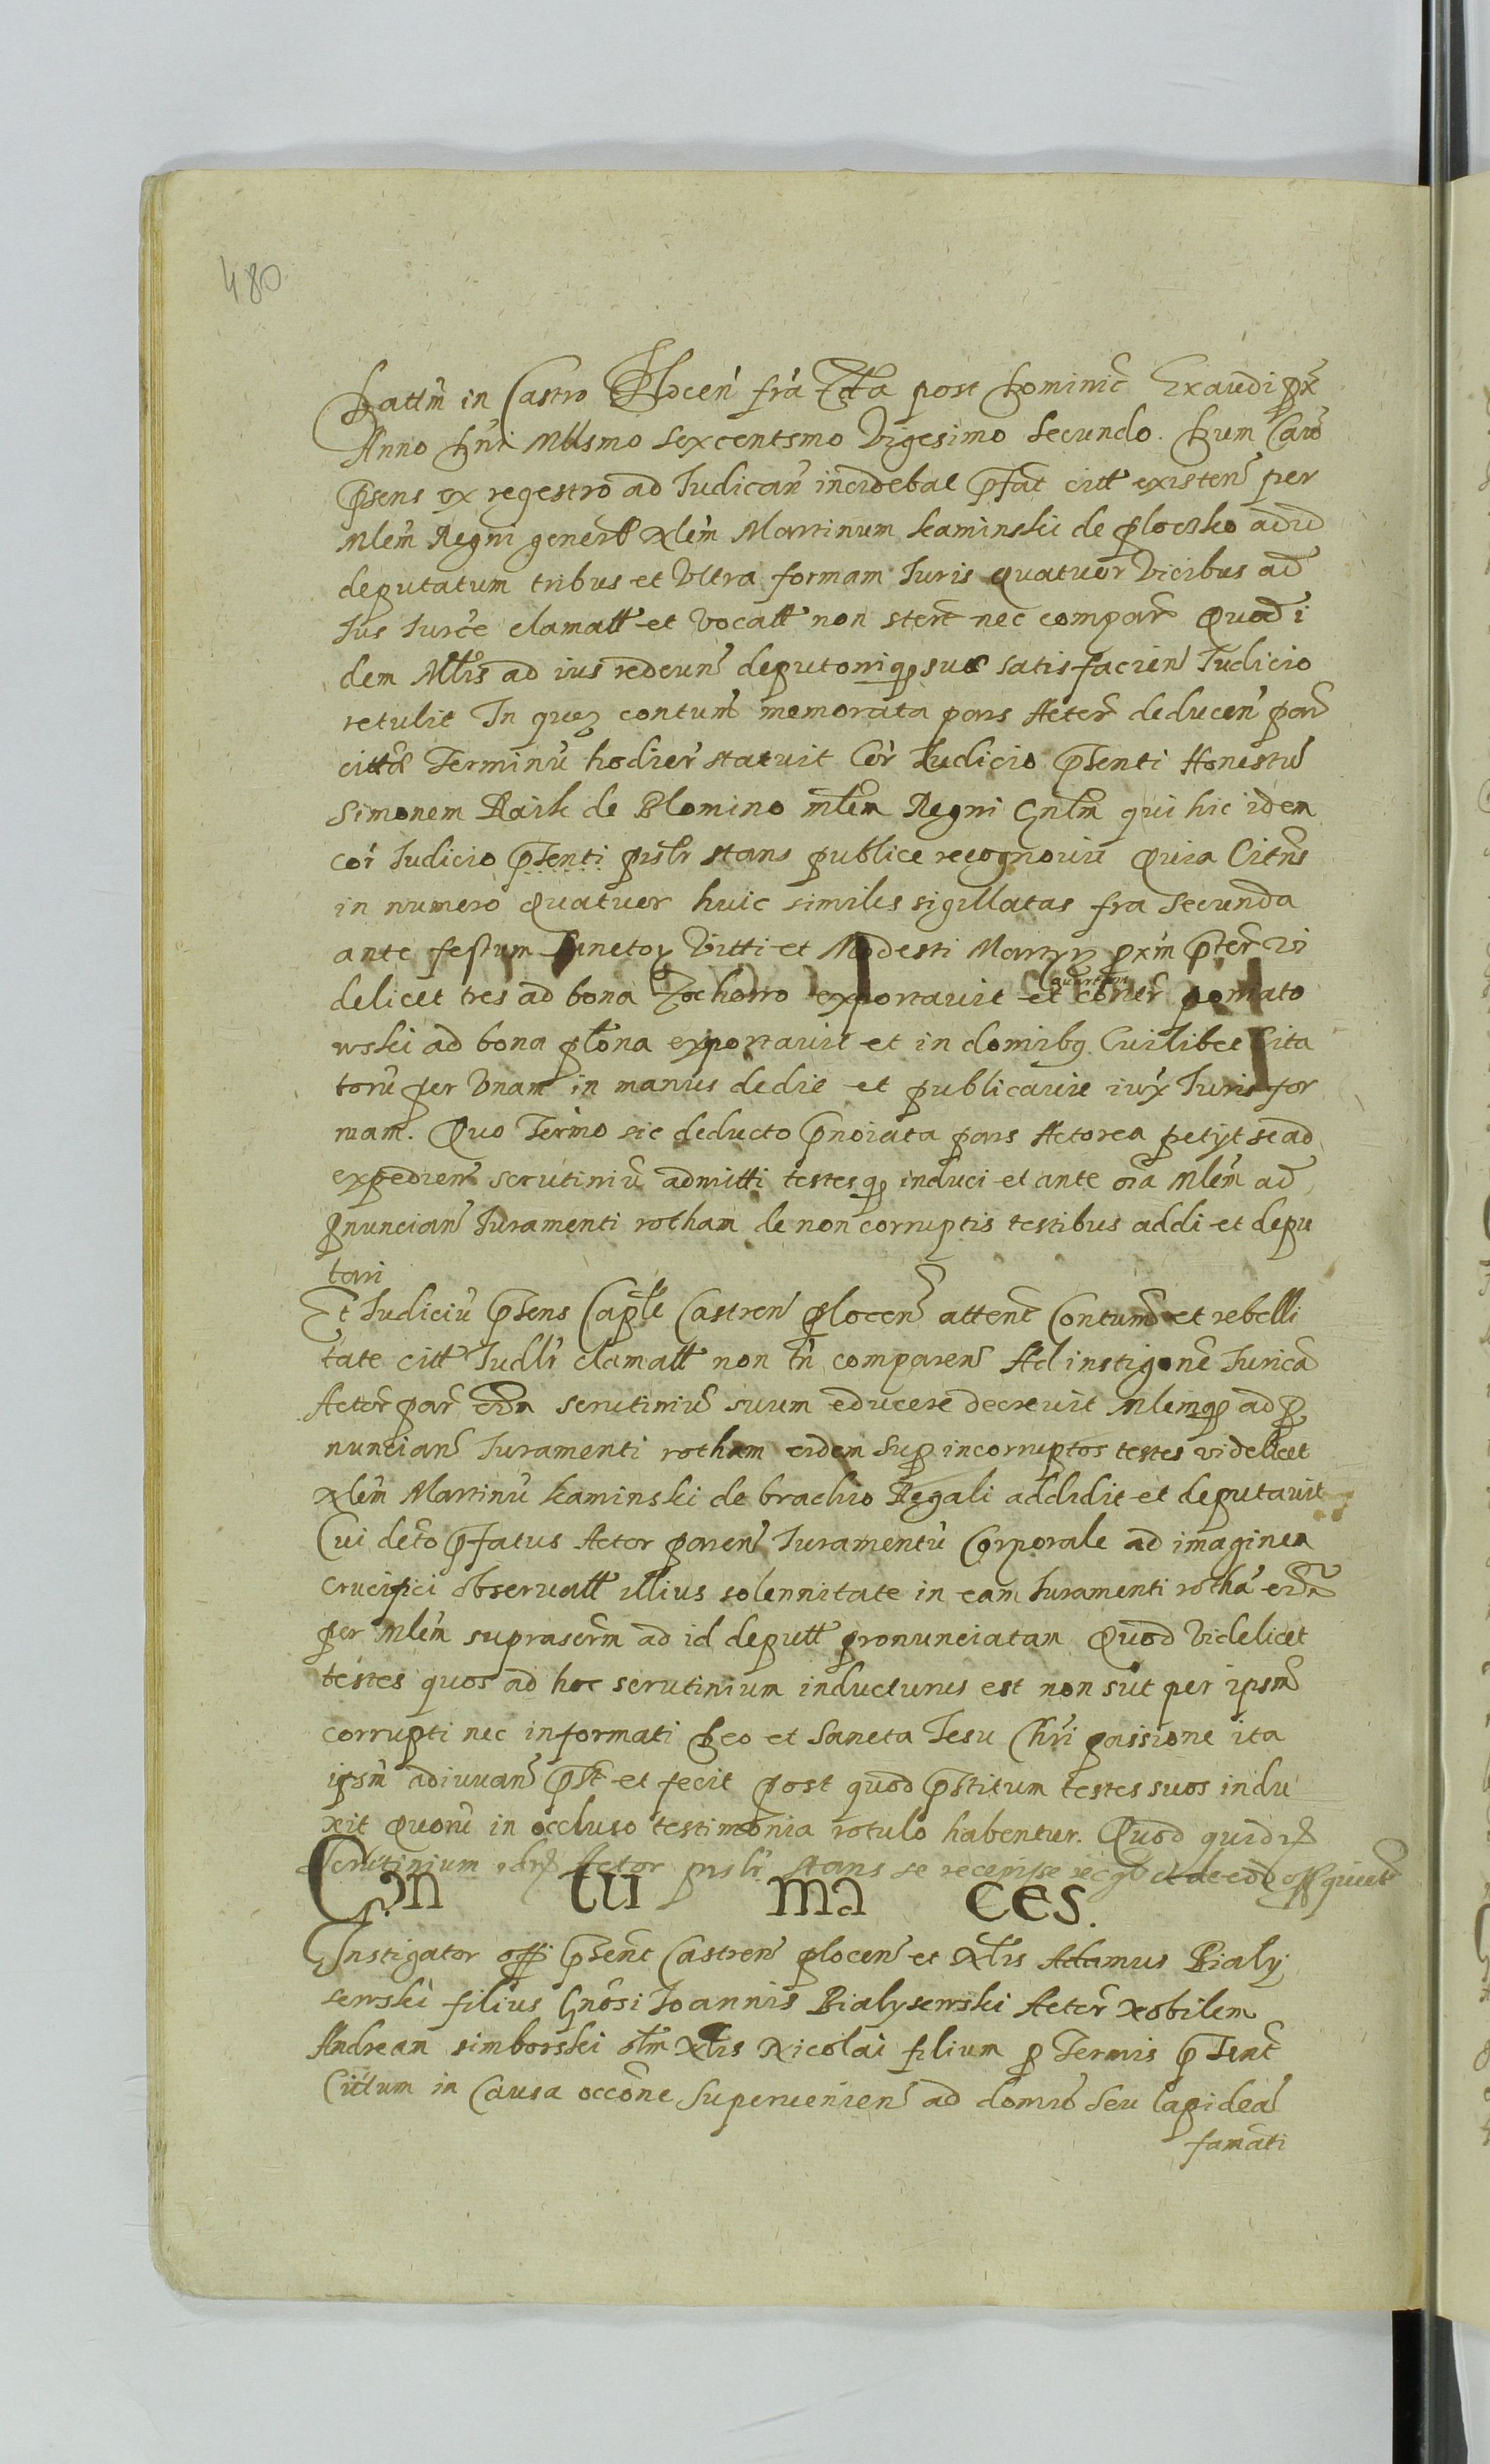 480
Dattm in Castro Plocen fria 4ta post Dominic Exaudi px
Anno Dni Mllsmo sexcentsmo Vigesimo Secundo. Dum Cau
pnsens ex regestro ad Iudican incidebat pfat citt existen per
Mlem Regni generl Nlem Martinum kaminski de plocsko ad id
deputatum tribus et Ultra formam Iuris Quatuor Vicibus ad
Ius Iurce clamatt et Vocatt non steter nec compar Quod i
dem Mtris ad ius redeun deputoniqz suae satisfacien Iudicio
retulit In quoz contum memorata pars Actor deducen par
citta Terminu hodier statuit Cor Iudicio pnsenti Honestu
Simonem Raik de Blomino mlem Regni Gnlm qui hic idem
cor Iudicio pnsenti prslr stans publice recognovit Quia Citnes
in numero Quatuor huic similes sigillatas fria Secunda
ante festum Sanctoz Vitti et Modesti Martyrz pxm pter vi
delicet tres ad bona Zochowo exportavit et quartam poniato
wski ad bona plona exportavit et in domibg Cuilibet Cita
toru per Unam in manus dedit et publicavit iux Iuris for
mam. Quo Termo sic deducto pnoiata pars Actorea petyt se ad
expedien scrutiniu admitti testesqz induci et ante oia Mlem ad
pnuncian Iuramenti rotham de non corruptis testibus addi et depu
tari
Et Iudiciu pnsens Caple Castren plocen attent Contum et rebelli
tate citt Iudlr clamatt non tn comparen Ad instigone Iurica
Actor par eidm scrutiniu suum educere decrevit Mlemqz ad p
nuncian Iuramenti rotham eidem sup incorruptos testes videlicet
Nlem Martinu kaminski de brachio Regali addidit et deputavit
Cui decto pfatus Actor paren Iuramentu Corporale ad imaginem
crucifici observatt illius solennitate in eam Iuramenti rotha eidm
per Mlem suprascrm ad id deputt pronunciatam Quod Videlicet
testes quos ad hoc scrutinium inducturus est non sut per ipsm
corrupti nec informati Deo et Sancta Iesu Chri passione ita
ipsm adiuvan pstt et fecit post quod pstitum testes suos indu
xit Quoru in occluso testimonia rotulo habentur. Quod quid
Scrutinium Actor prslr stans se recepisse recgt et de eod off quiet
Con tu ma ces.
Instigator offi pnsent Castren plocen et Nlis Adamus Bialy
sewski filius Gnosi Ioannis Bialysewski Actor Nobilem
Andream simborski olm Nlis Nicolai filium p Termis pnsent
Cittum in Causa occone Supervenien ad domu seu Lapidea
famati